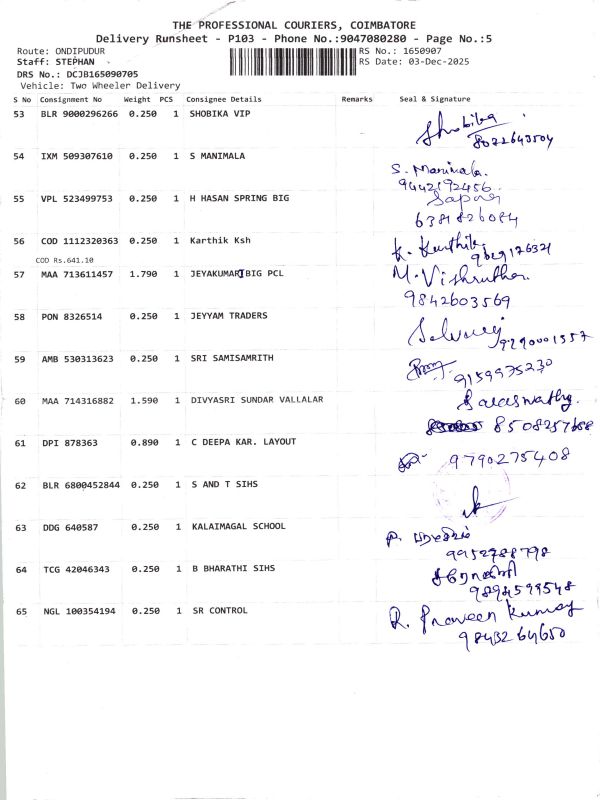 THE PROFESSIONAL COURIERS, COIMBATORE
Delivery Runsheet - P103 - Phone No.:9047080280 - Page No.:5
Route: ONDIPUDUR
RS No.: 1650907
Staff: STEPHAN
RS Date: 03-Dec-2025
DRS No.: DCJB165090705
Vehicle: Two Wheeler Delivery
S No Consignment No Weight PCS Consignee Details Remarks Seal & Signature
53 BLR 9000296266 0.250 1 SHOBIKA VIP Shobika
8072643504
54 IXM 509307610 0.250 1 S MANIMALA S. Manimala.
9442192456.
55 VPL 523499753 0.250 1 H HASAN SPRING BIG
6381826084
56 COD 1112320363 0.250 1 Karthik Ksh K. Karthik
9629176321
COD Rs.641.10
57 MAA 713611457 1.790 1 JEYAKUMAR BIG PCL M. Vishrutha.
9842603569
58 PON 8326514 0.250 1 JEYYAM TRADERS Selvaraj
9290001357
59 AMB 530313623 0.250 1 SRI SAMISAMRITH
9159975230
60 MAA 714316882 1.590 1 DIVYASRI SUNDAR VALLALAR Saraswathy.
8508257688
61 DPI 878363 0.890 1 C DEEPA KAR. LAYOUT 9790275408
62 BLR 6800452844 0.250 1 S AND T SIHS
63 DDG 640587 0.250 1 KALAIMAGAL SCHOOL
9952788798
64 TCG 42046343 0.250 1 B BHARATHI SIHS
9894599548
65 NGL 100354194 0.250 1 SR CONTROL R. Praveen Kumar
9843264650